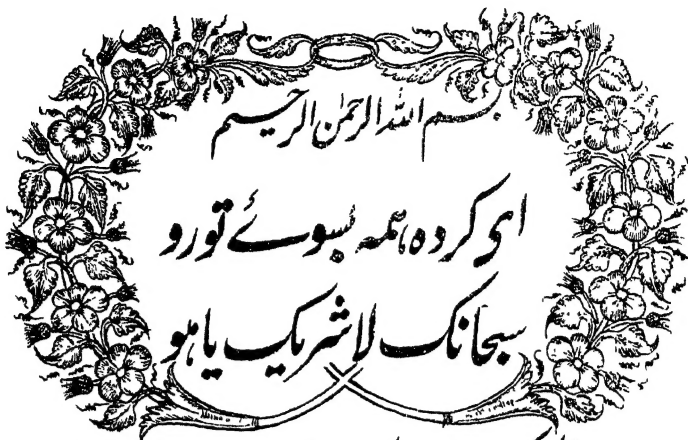 بسم الله الرحمن الرحيم
ای کرده همه بسوئے تو رو
سبحانک لا شریک یا هو